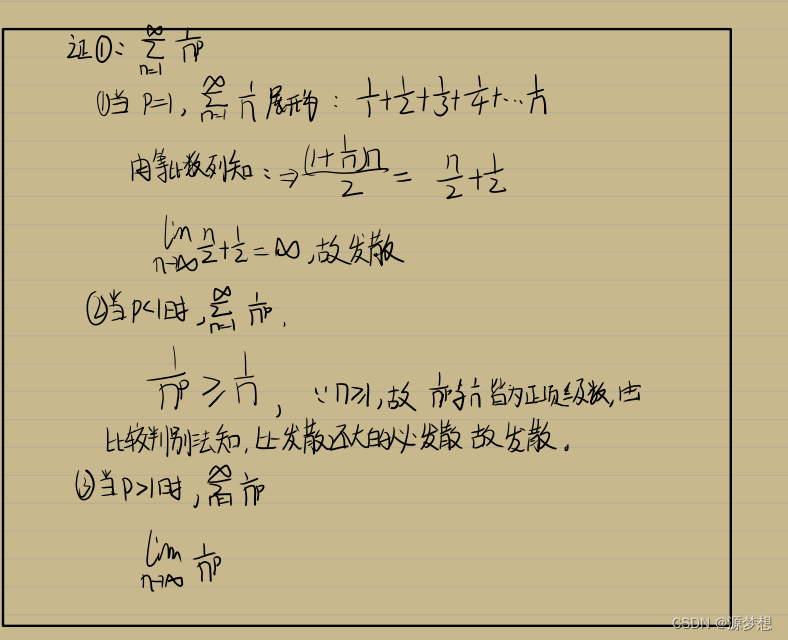 证①: ∑_{n=1}^{∞} 1/n^p
①当 P=1, ∑_{n=1}^{∞} 1/n 展开为: 1/1+1/2+1/3+1/4+…1/n
由等比数列知: ⇒ (1+1/n)n/2 = n/2+1/2
lim_{n→∞} n/2+1/2=∞,故发散
②当P<1时, ∑_{n=1}^{∞} 1/n^p,
1/n^p ≥ 1/n, ∵n≥1,故 1/n^p与1/n 皆为正项级数,由
比较判别法知,比发散还大的必发散 故发散。
③当P>1时, ∑_{n=1}^{∞} 1/n^p
lim_{n→∞} 1/n^p
CSDN @源梦想